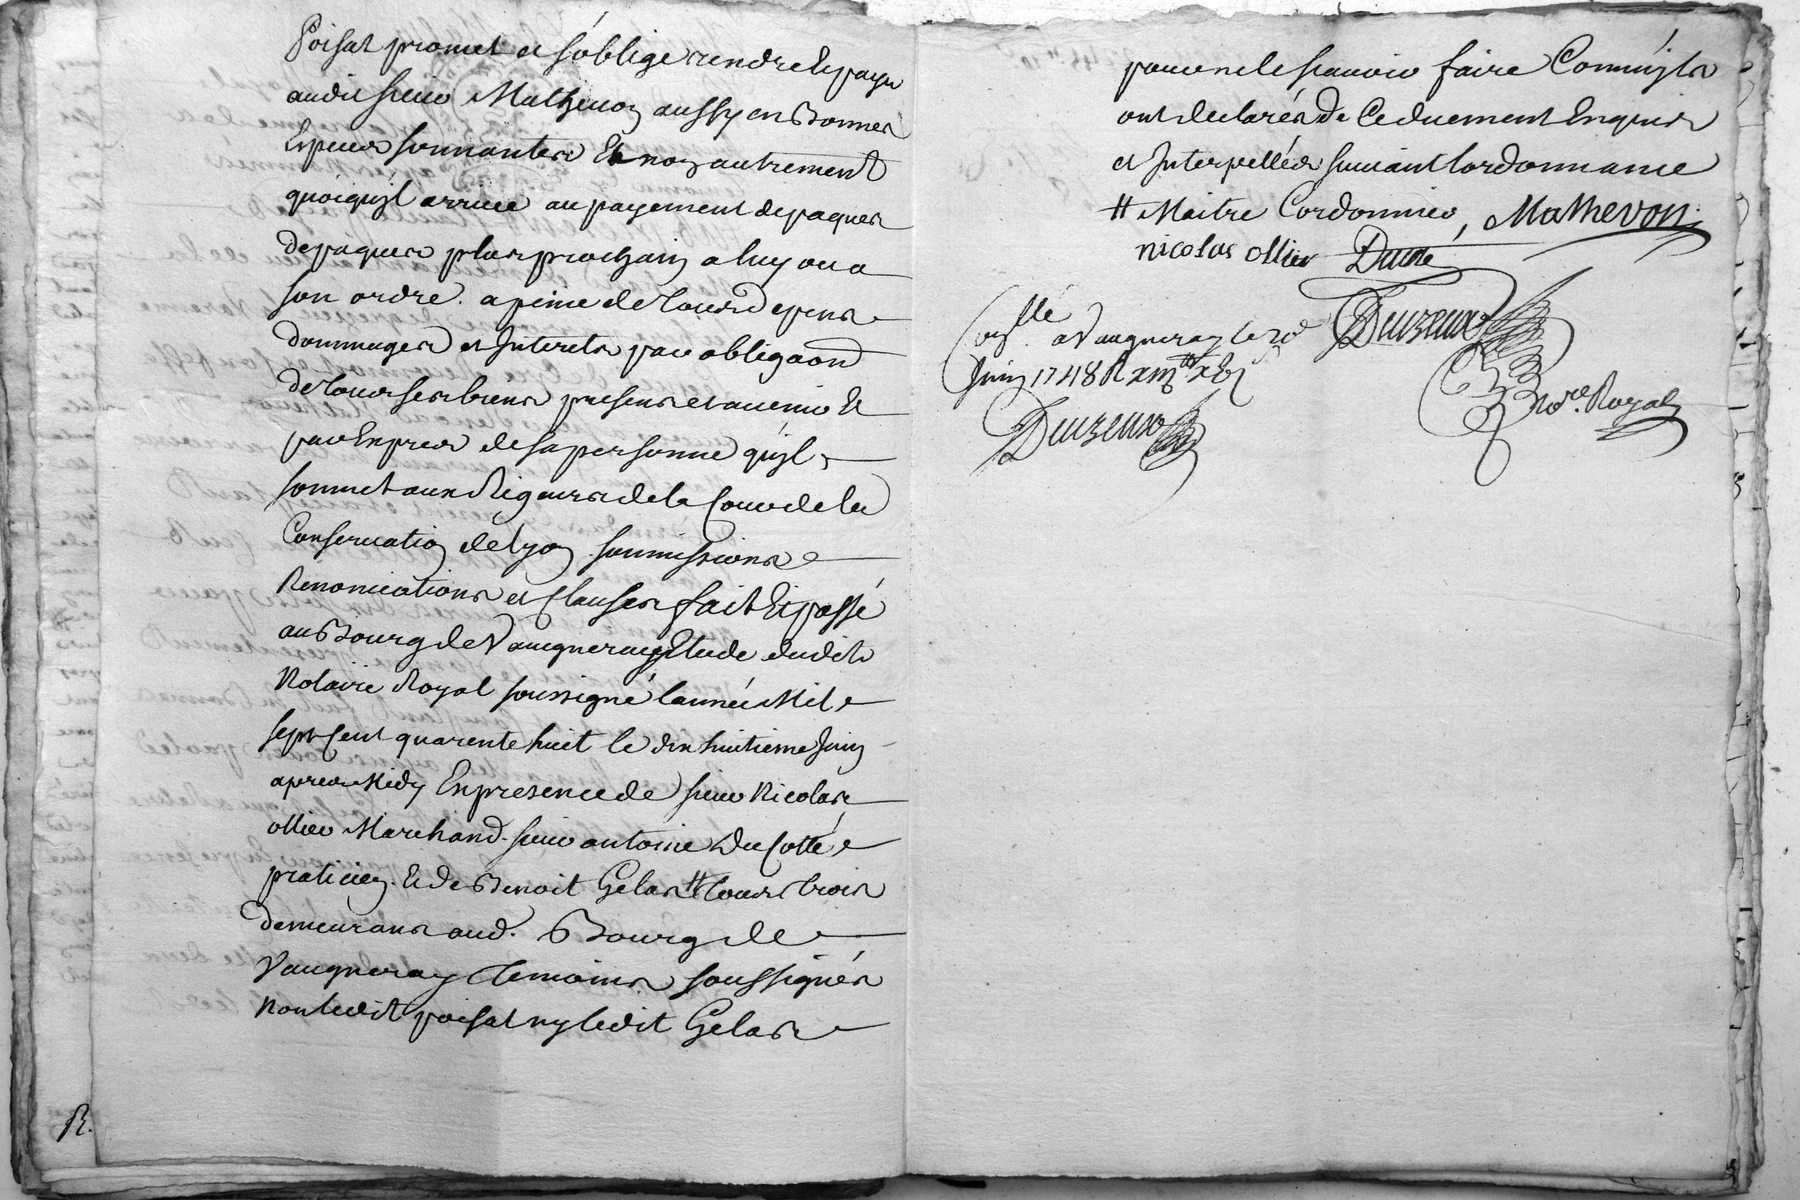 Poisat promet et s'oblige rendre Et payer
audit sieur Mathevon aussy en Bonnes
Especes sonnantes Et non autrement
quoiqu'jl arrive au payement de paques
de paques plus prochain a luy ou a
son ordre. a peine de tous depens
dommages et Interets par obligaon
de tous ses biens presens et avenir Et
par Expres de sa personne qu'jl
soumet aux Rigeurs de la Cour de la
Conservation de Lyon soumissions
Renonciations et Clauses fait Et passé
au Bourg de Vaugneray Etude dudit
Notaire Royal soussigné l'année Mil
sept Cent quarente huit le dix huitieme Juin
apres Midy En presence de sieur Nicolas
ollier Marchand. sieur antoine Du Cotté
praticien. Et de Benoit Gelas # tous trois
demeurans aud. Bourg de
Vaugneray temoins soussignés
Non ledit poisat ny ledit Gelas
R.
pour ne le scavoir faire Comm'jls
ont declarés de Ce duement Enquis
et Interpellés suivant l'ordonnance
# Maitre Cordonnier, Mathevon
nicolas ollier
Deuzeux
Not.re Royal
Con.llé a Vaugneray le 20
Juin 1748 R
Deuzeux